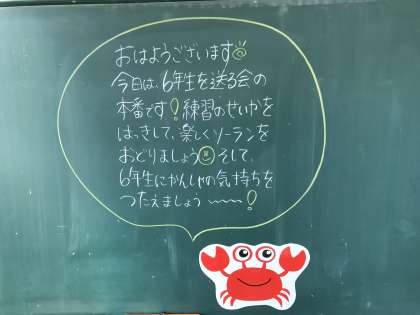 おはようございます
今日は、6年生を送る会の
本番です!練習のせいかを
はっきして、楽しくソーランを
おどりましょう そして、
6年生にかんしゃの気持ちを
つたえましょう〜〜!